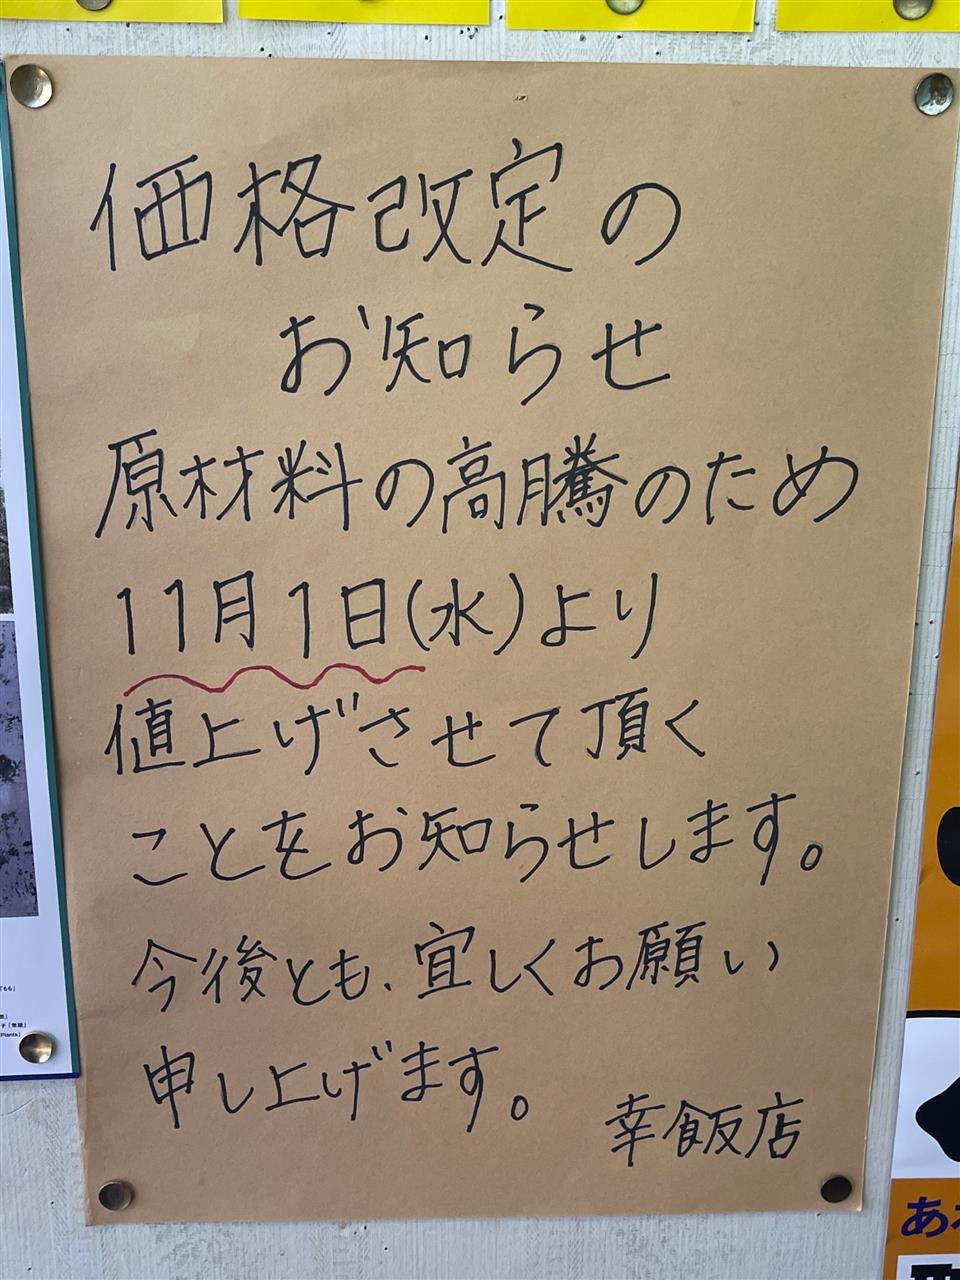 価格改定の
お知らせ
原材料の高騰のため
11月1日(水)より
値上げさせて頂く
ことをお知らせします。
今後とも、宜しくお願い
申し上げます。
幸飯店